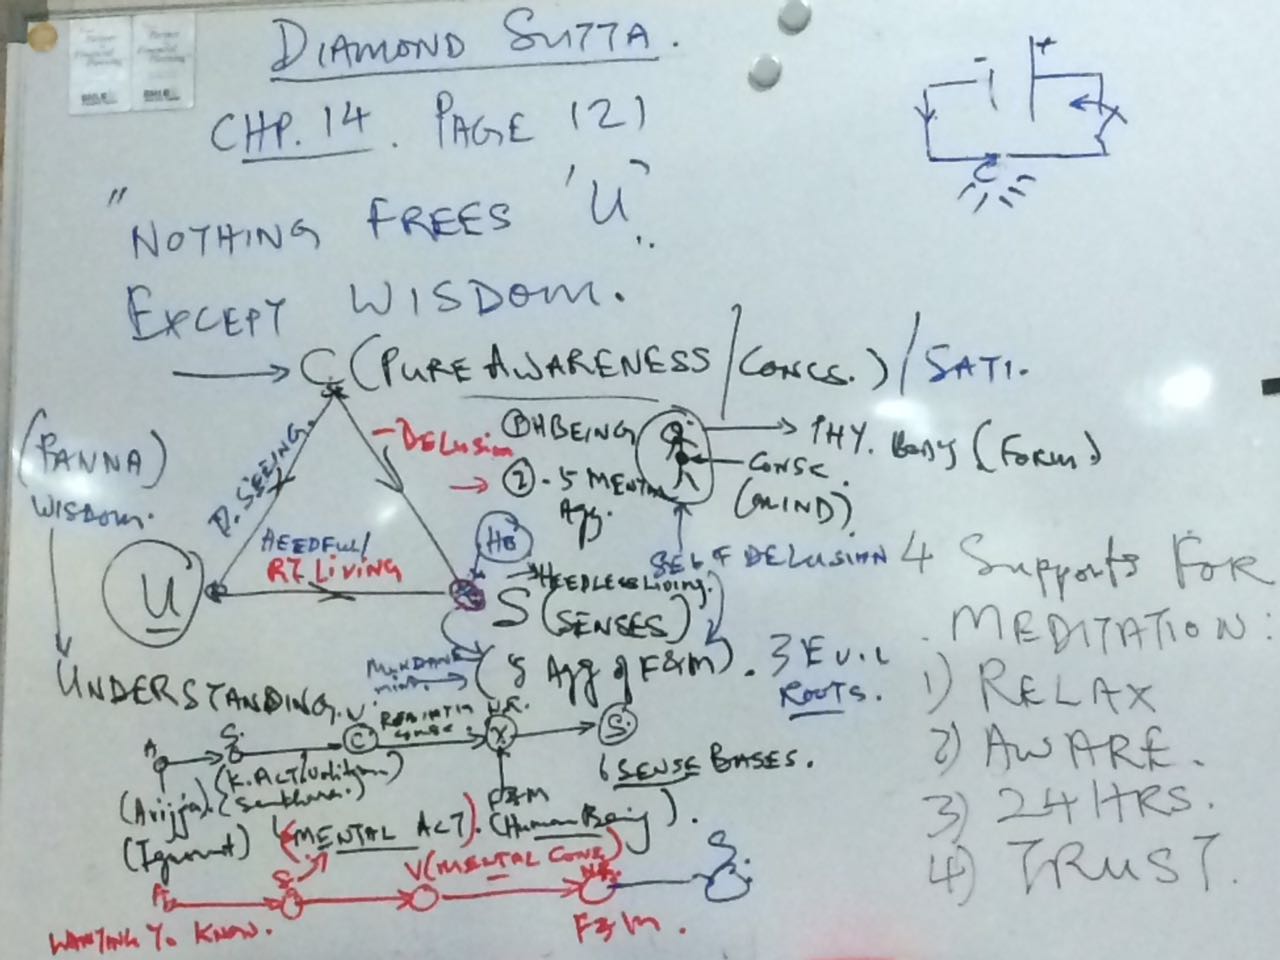 DIAMOND SUTTA.
CHP. 14. PAGE 121
"NOTHING FREES 'U'
EXCEPT WISDOM.
C (PURE AWARENESS / CONCS.) / SATI.
(PANNA)
WISDOM.
D. SEEING.
DELUSION
① H BEING
② - 5 MENTAL
Agg.
PHY. Body (FORM)
CONSC.
(MIND)
HB
SELF DELUSION
HEEDFUL/
RT. LIVING
U
HEEDLESS Living.
S (SENSES)
MUNDANE
mind.
(5 Agg of F&M). 3 EVIL
ROOTS.
UNDERSTANDING.
4 Supports FOR
MEDITATION:
1) RELAX
2) AWARE.
3) 24 HRS.
4) TRUST.
A
S.
V.
C
N.R.
X
S.
(Avijja)
(K. ACT/Volition)
(Sankhara.)
6 SENSE BASES.
F&M
(Ignorant)
(MENTAL ACT).
(Human Being).
A
S.
V (MENTAL CONS)
N.R.
S.
WANTING To KNOW.
F&M.